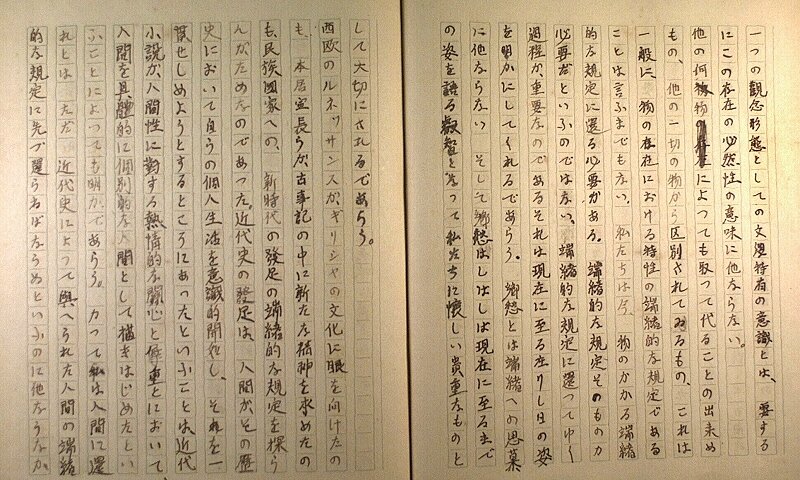 一つの観念形態としての文學特有の意識とは、要する
にこの存在の必然性の意味に他ならない。
他の何物の存在によっても取って代ることの出来ぬ
もの、他の一切の物から区別されてゐるもの、これは
一般に、物の存在における特性の端緒的な規定である
ことは言ふまでもない。私たちは今、物のかかる端緒
的な規定に還る必要がある。端緒的な規定そのものが
必要だといふのではない、端緒的な規定に還つてゆく
過程が、重要なのであるそれは現在に至る在りし日の姿
を明かにしてくれるであらう。郷愁とは端緒への思慕
に他ならない そして郷愁はしばしば現在に至るまで
の姿を語る叡智となつて私たちに懐しい貴重なものと
して大切にされるであらう。
西欧のルネッサンスが、ギリシャの文化に眼を向けたの
も、本居宣長らが、古事記の中に新たな精神を求めたの
も、民族國家への、新時代の發足の端緒的な規定を探ら
んがためなのであつた。近代史の發足は、人間が、その歴
史において自らの個人生活を意識的開始し、それを一
般せしめようとするところにあつたといふことは近代
小説が、人間性に對する熱情的な關心と尊重とにおいて
人間を具體的に個別的な人間として描きはじめたとい
ふことによつても明かであらう。かつて私は人間に還
れとは、ただ、近代史によつて與へられた人間の端緒
的な規定に先づ還らねばならぬといふのに他ならなか